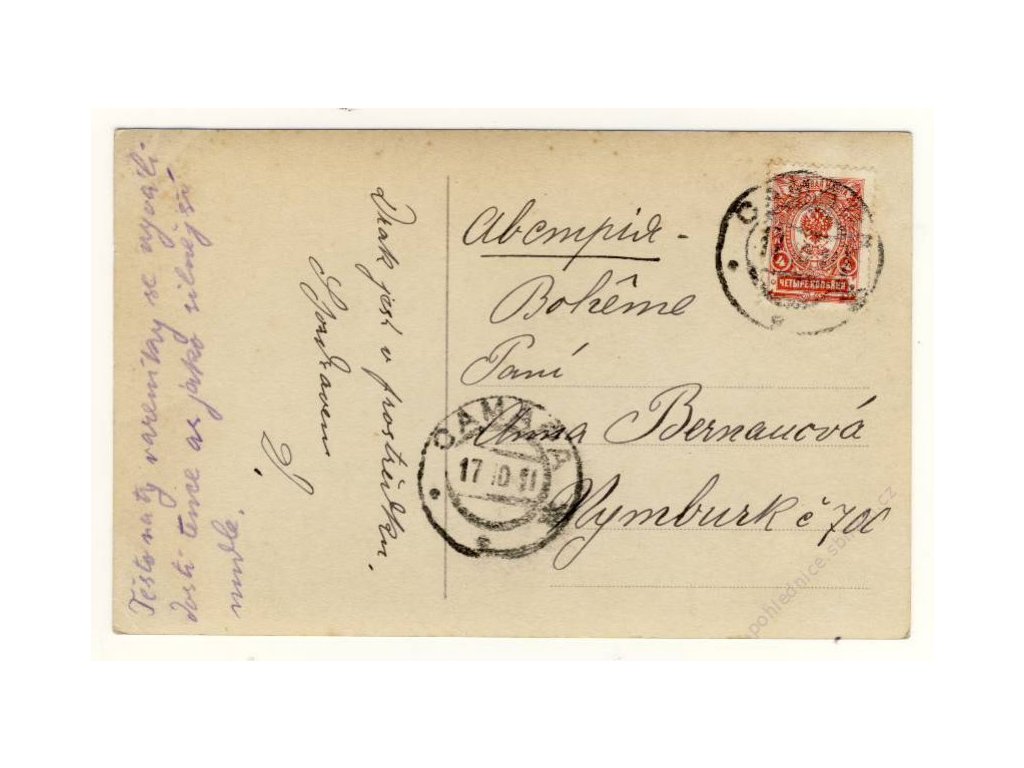 Těsto na ty varenïky se vyválí-
dosti tence as jako silnejsí
nudle.
Vrak jest v prostředku.
Pozdravem
J.
Австрія -
Bohême
Paní
Anna Bernauová
Nymburk č 700
САМАРА
17 10 11
ЧЕТЫРЕ КОПѢЙКИ
4
pohlednice.sbirky.cz